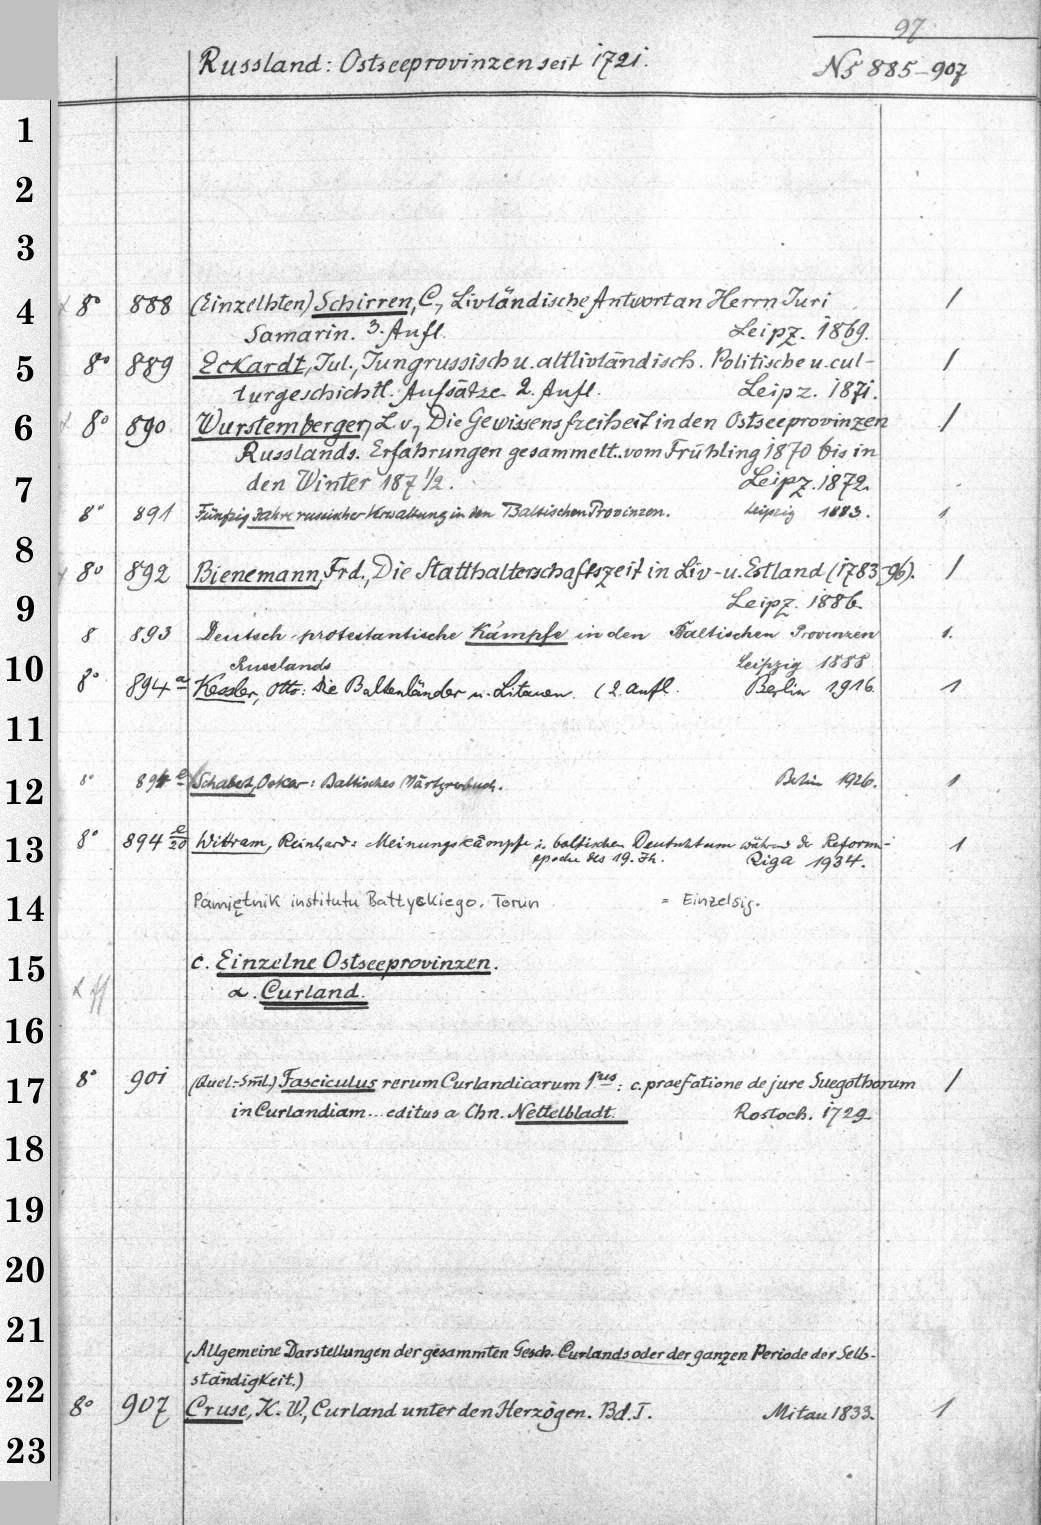 97
Russland: Ostseeprovinzen seit 1721. No 885-907
1
2
3
4
x 8° 888 (Einzelhten) Schirren, C., Livländische Antwort an Herrn Juri 1
Samarin. 3. Aufl. Leipz. 1869.
5
8° 889 Eckardt, Jul., Jungrussisch u. altlivländisch. Politische u. cul- 1
turgeschichtl. Aufsätze 2. Aufl. Leipz. 1871.
6
x 8° 890 Wurstemberger, L. v., Die Gewissensfreiheit in den Ostseeprovinzen 1
Russlands. Erfahrungen gesammelt..vom Frühling 1870 bis in
den Winter 187 1/2. Leipz. 1872.
7
8° 891 Fünfzig Jahre russischer Verwaltung in den Baltischen Provinzen. Leipzig 1883. 1
8
x 8° 892 Bienemann, Frd., Die Statthalterschaftszeit in Liv- u. Estland (1783-96). 1
Leipz. 1886.
9
8 893 Deutsch-protestantische Kämpfe in den Baltischen Provinzen 1.
Russlands Leipzig 1888
10
8° 894 a Kessler, Otto: Die Baltenländer u. Litauen. (2. Aufl. Berlin 1916. 1
11
12
8° 894 e Schabert, Oskar: Baltisches Märtyrerbuch. Berlin 1926. 1
13
8° 894 e/20 Wittram, Reinhard: Meinungskämpfe i. baltischen Deutschtum während der Reform- 1
epoche des 19. Jh. Riga 1934.
14
Pamiętnik institutu Bałtyckiego. Toruń = Einzelsig.
15
c. Einzelne Ostseeprovinzen.
α. Curland.
16
17
8° 901 (Quel.-Sml.) Fasciculus rerum Curlandicarum 1rus: c. praefatione de jure Suegothorum 1
in Curlandiam... editus a Chn. Nettelbladt. Rostoch. 1729
18
19
20
21
(Allgemeine Darstellungen der gesammten Gesch. Curlands oder der ganzen Periode der Selb-
ständigkeit.)
22
8° 907 Cruse, K. W., Curland unter den Herzögen. Bd. I. Mitau 1833. 1
23